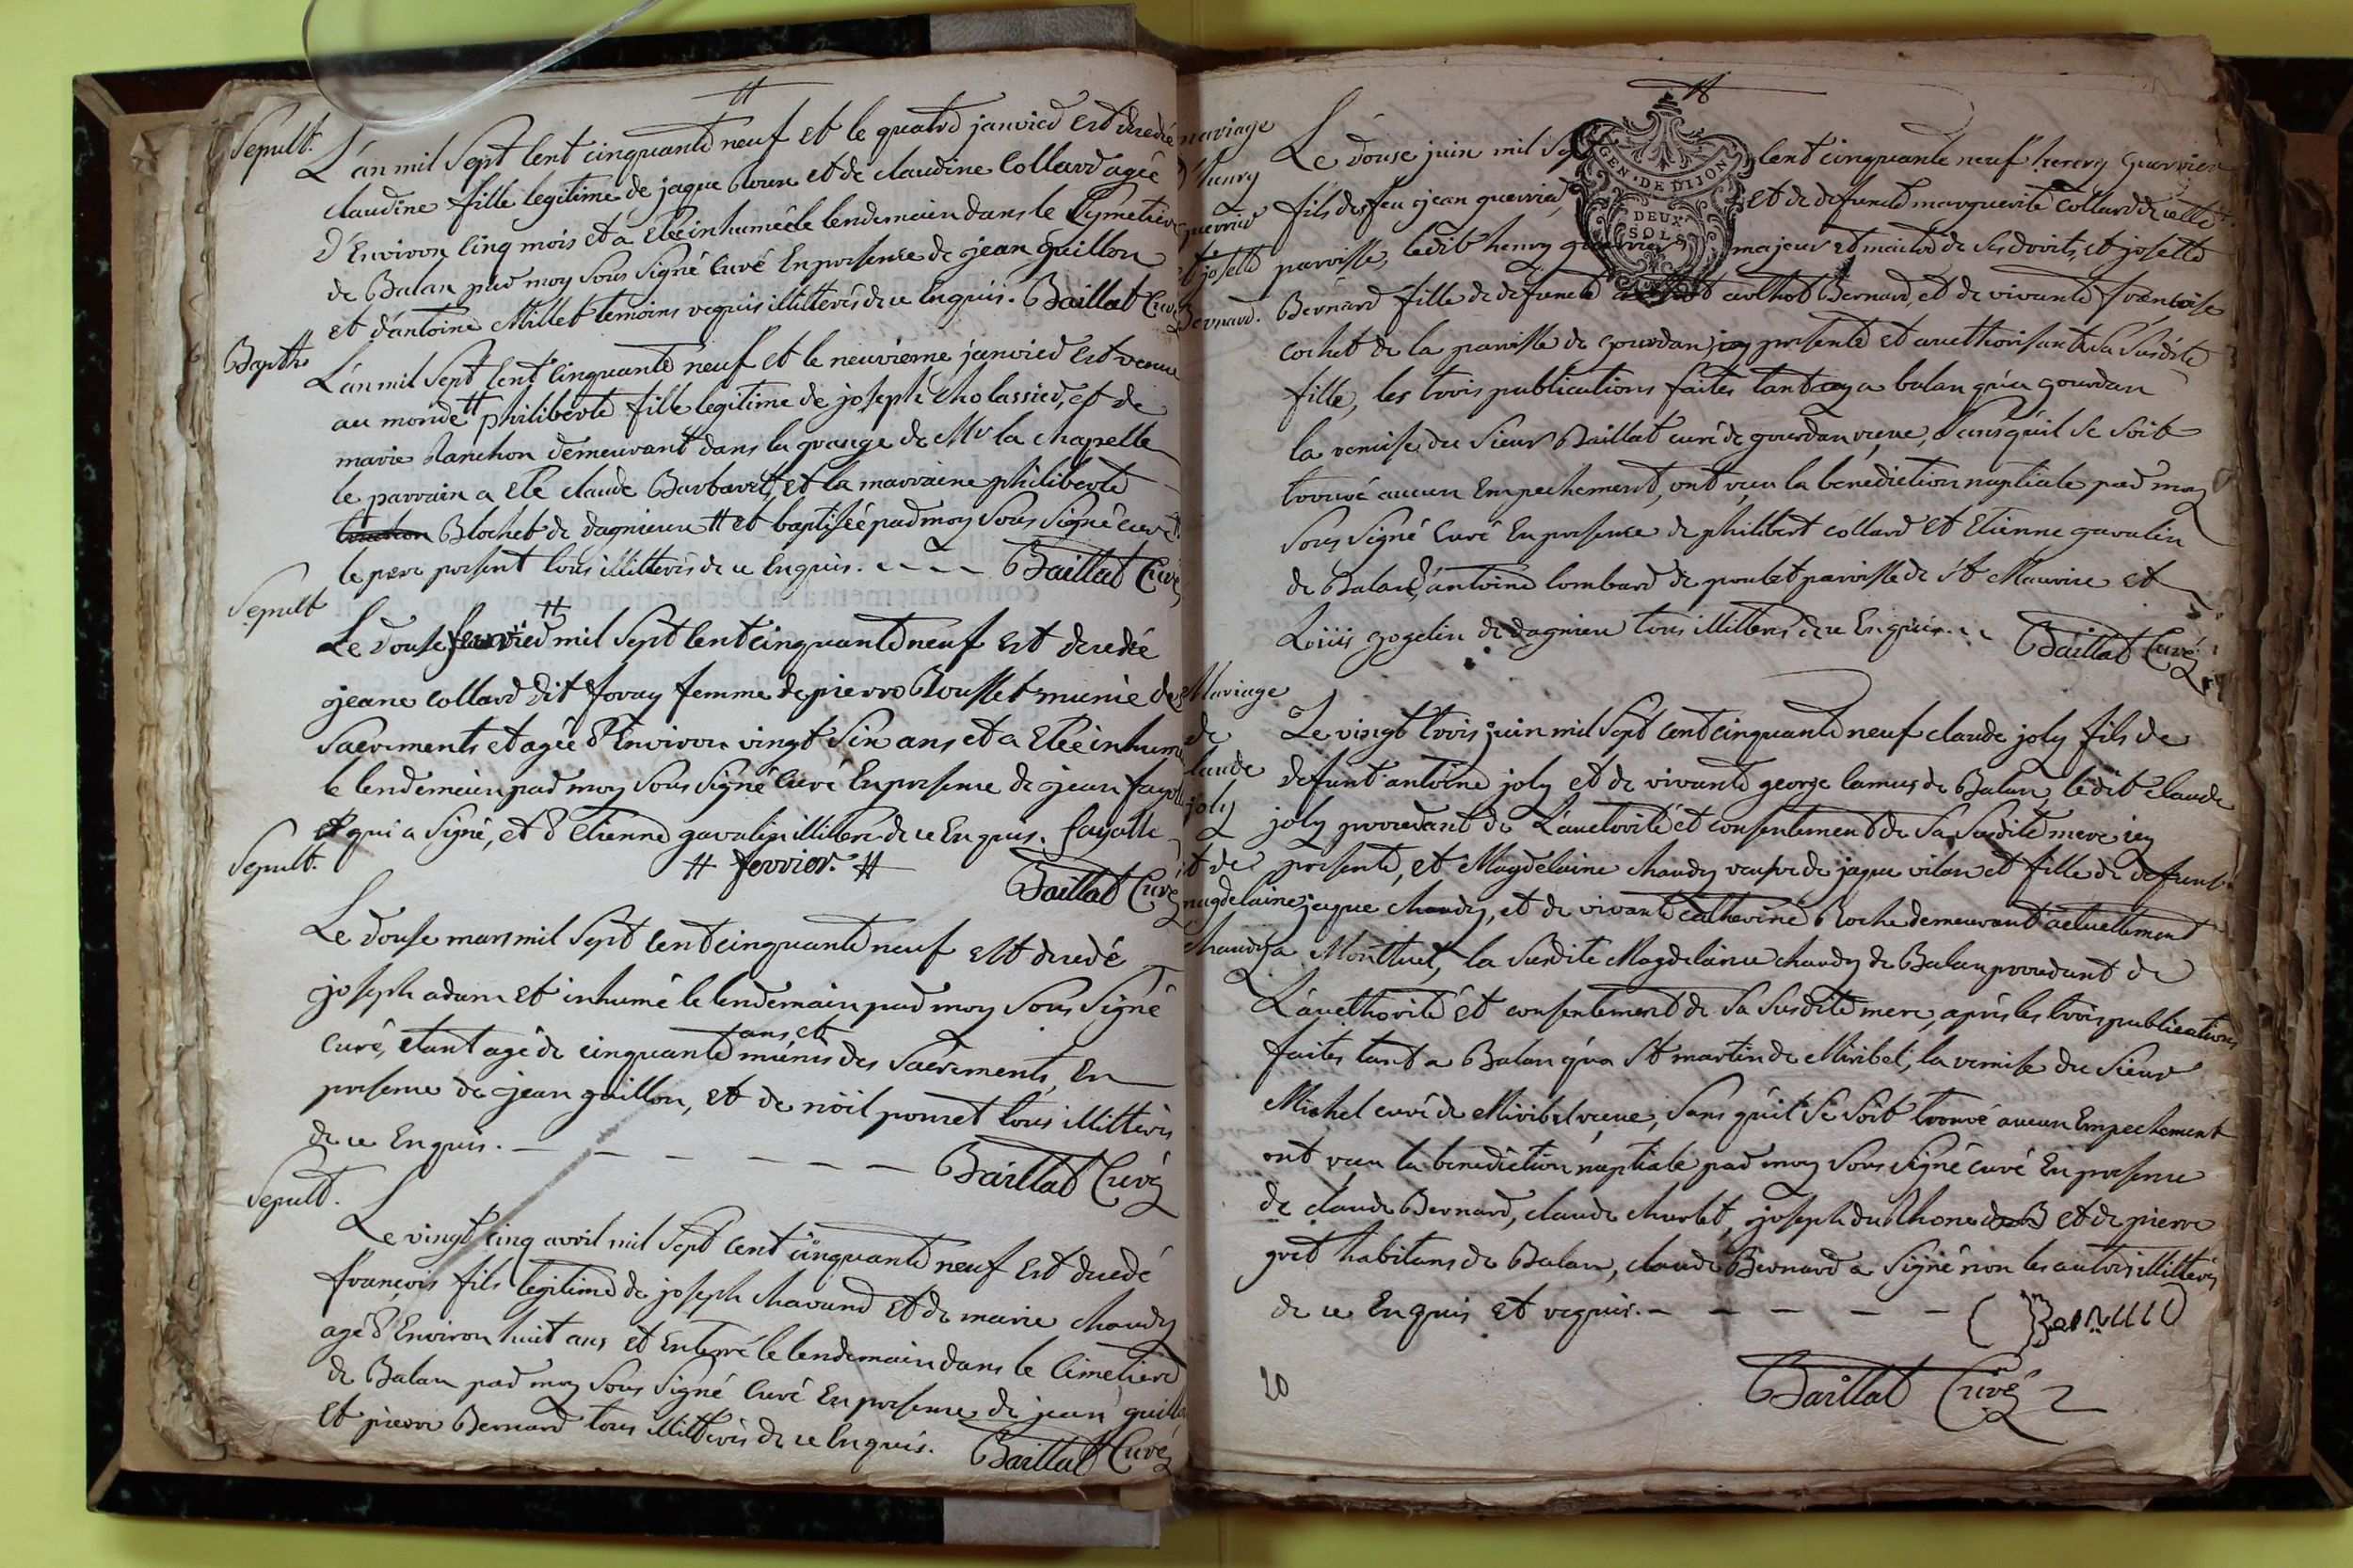 Sepult.
L'an mil Sept Cent cinquante neuf et le quatre janvier est decedée
claudine fille legitime de jaque et de claudine Collard agée
d'Environ Cinq mois et a eté inhumée le lendemain dans le Cymetiere
de Balan par moy Sous Signé Curé En presence de jean guillon
et d'antoine Millet temoins requis illitterés de ce Enquis. Baillat Curé
Bapt.
L'an mil Sept Cent Cinquante neuf et le neuvieme janvier est venue
au monde philiberte fille legitime de joseph cholassier, et de
marie demeurant dans la grange de Mr la chapelle
le parrain a eté claude Barbaret, et la marraine philiberte
Blochet de dagnieux et baptisée par moy Sous Signé curé
le pere present tous illitterés de ce Enquis. Baillat Curé
Sepult
Le douse janvier mil Sept Cent Cinquante neuf est decedée
jeane collard dit foray femme de pierre Rousset munie des
Sacrements et agée d'Environ vingt Six ans et a eté inhumé
le lendemain par moy Sous Signé Curé En presence de jean fayolle
qui a Signé, et d'Etienne gavalin illiteré de ce Enquis. fayolle
fevrier. Baillat Curé
Sepult.
Le douse mars mil Sept Cent cinquante neuf est decedé
joseph adam et inhumé le lendemain par moy Sous Signé
Curé, etant agé de cinquante ans et munis des Sacrements, En
presence de jean guillon, et de noïl ponret tous illitterés
de ce Enquis. Baillat Curé
Sepult.
Le vingt cinq avril mil Sept Cent cinquante neuf Est decedé
françois fils legitime de joseph chavand et de marie chaudy
agé d'Environ huit ans et Enterré le lendemain dans le Cimetiere
de Balan par moy Sous Signé Curé En presence de jean guillon
Et pierre Bernard tous illitterés de ce Enquis. Baillat Curé
mariage
d'henry
guerrier
et josette
Bernard.
Le douse juin mil Sept Cent cinquante neuf henry guerrier
fils de feu jean guerrier, et de defuncte marguerite collard de cette
parroisse, ledit henry guerrier majeur et maitre de Ses droits, et josette
Bernard fille de defunct Bernard, et de vivante françoise
cochet de la parroisse de gourdan icy presente et aucthorisante Sa Susdite
fille, les trois publications faites tant icy a balan qu'a gourdan
la remise du Sieur Baillat curé de gourdan reçue, Sans qu'il Se Soit
trouvé aucun Empechement, ont reçu la benediction nuptiale par moy
Sous Signé Curé En presence de philibert collard et Etienne gavalin
de Balan, antoine lombard de paroisse de St Maurice et
Loüis gogelin de dagnieu tous illiterés de ce Enquis. Baillat Curé
Mariage
de
claude
joly
et de
magdelaine
chaudy
Le vingt trois juin mil Sept Cent cinquante neuf claude joly fils de
defunt antoine joly et de vivante george camus de Balan, ledit Claude
joly procedant de L'auctorité et consentement de Sa Susdite mere icy
presente, et Magdelaine chaudy veufve de jaque vilan et fille de defunt
jaque chaudy, et de vivante catherine Roche demeurant actuellement
a Montluel, la Susdite Magdelaine chaudy de Balan procedant de
L'aucthorité et consentement de Sa Susdite mere, après les trois publications
faites tant a Balan qu'a St martin de Miribel, la remise du Sieur
Michel curé de Miribel reçue, Sans qu'il Se Soit trouvé aucun Empechement
ont reçu la benediction nuptiale par moy Sous Signé curé En presence
de claude Bernard, claude charlet, joseph du Rhone et de pierre
gret habitans de Balan, claude Bernard a Signé non les autres illitterés
de ce Enquis et requis.
Baillat Curé
20